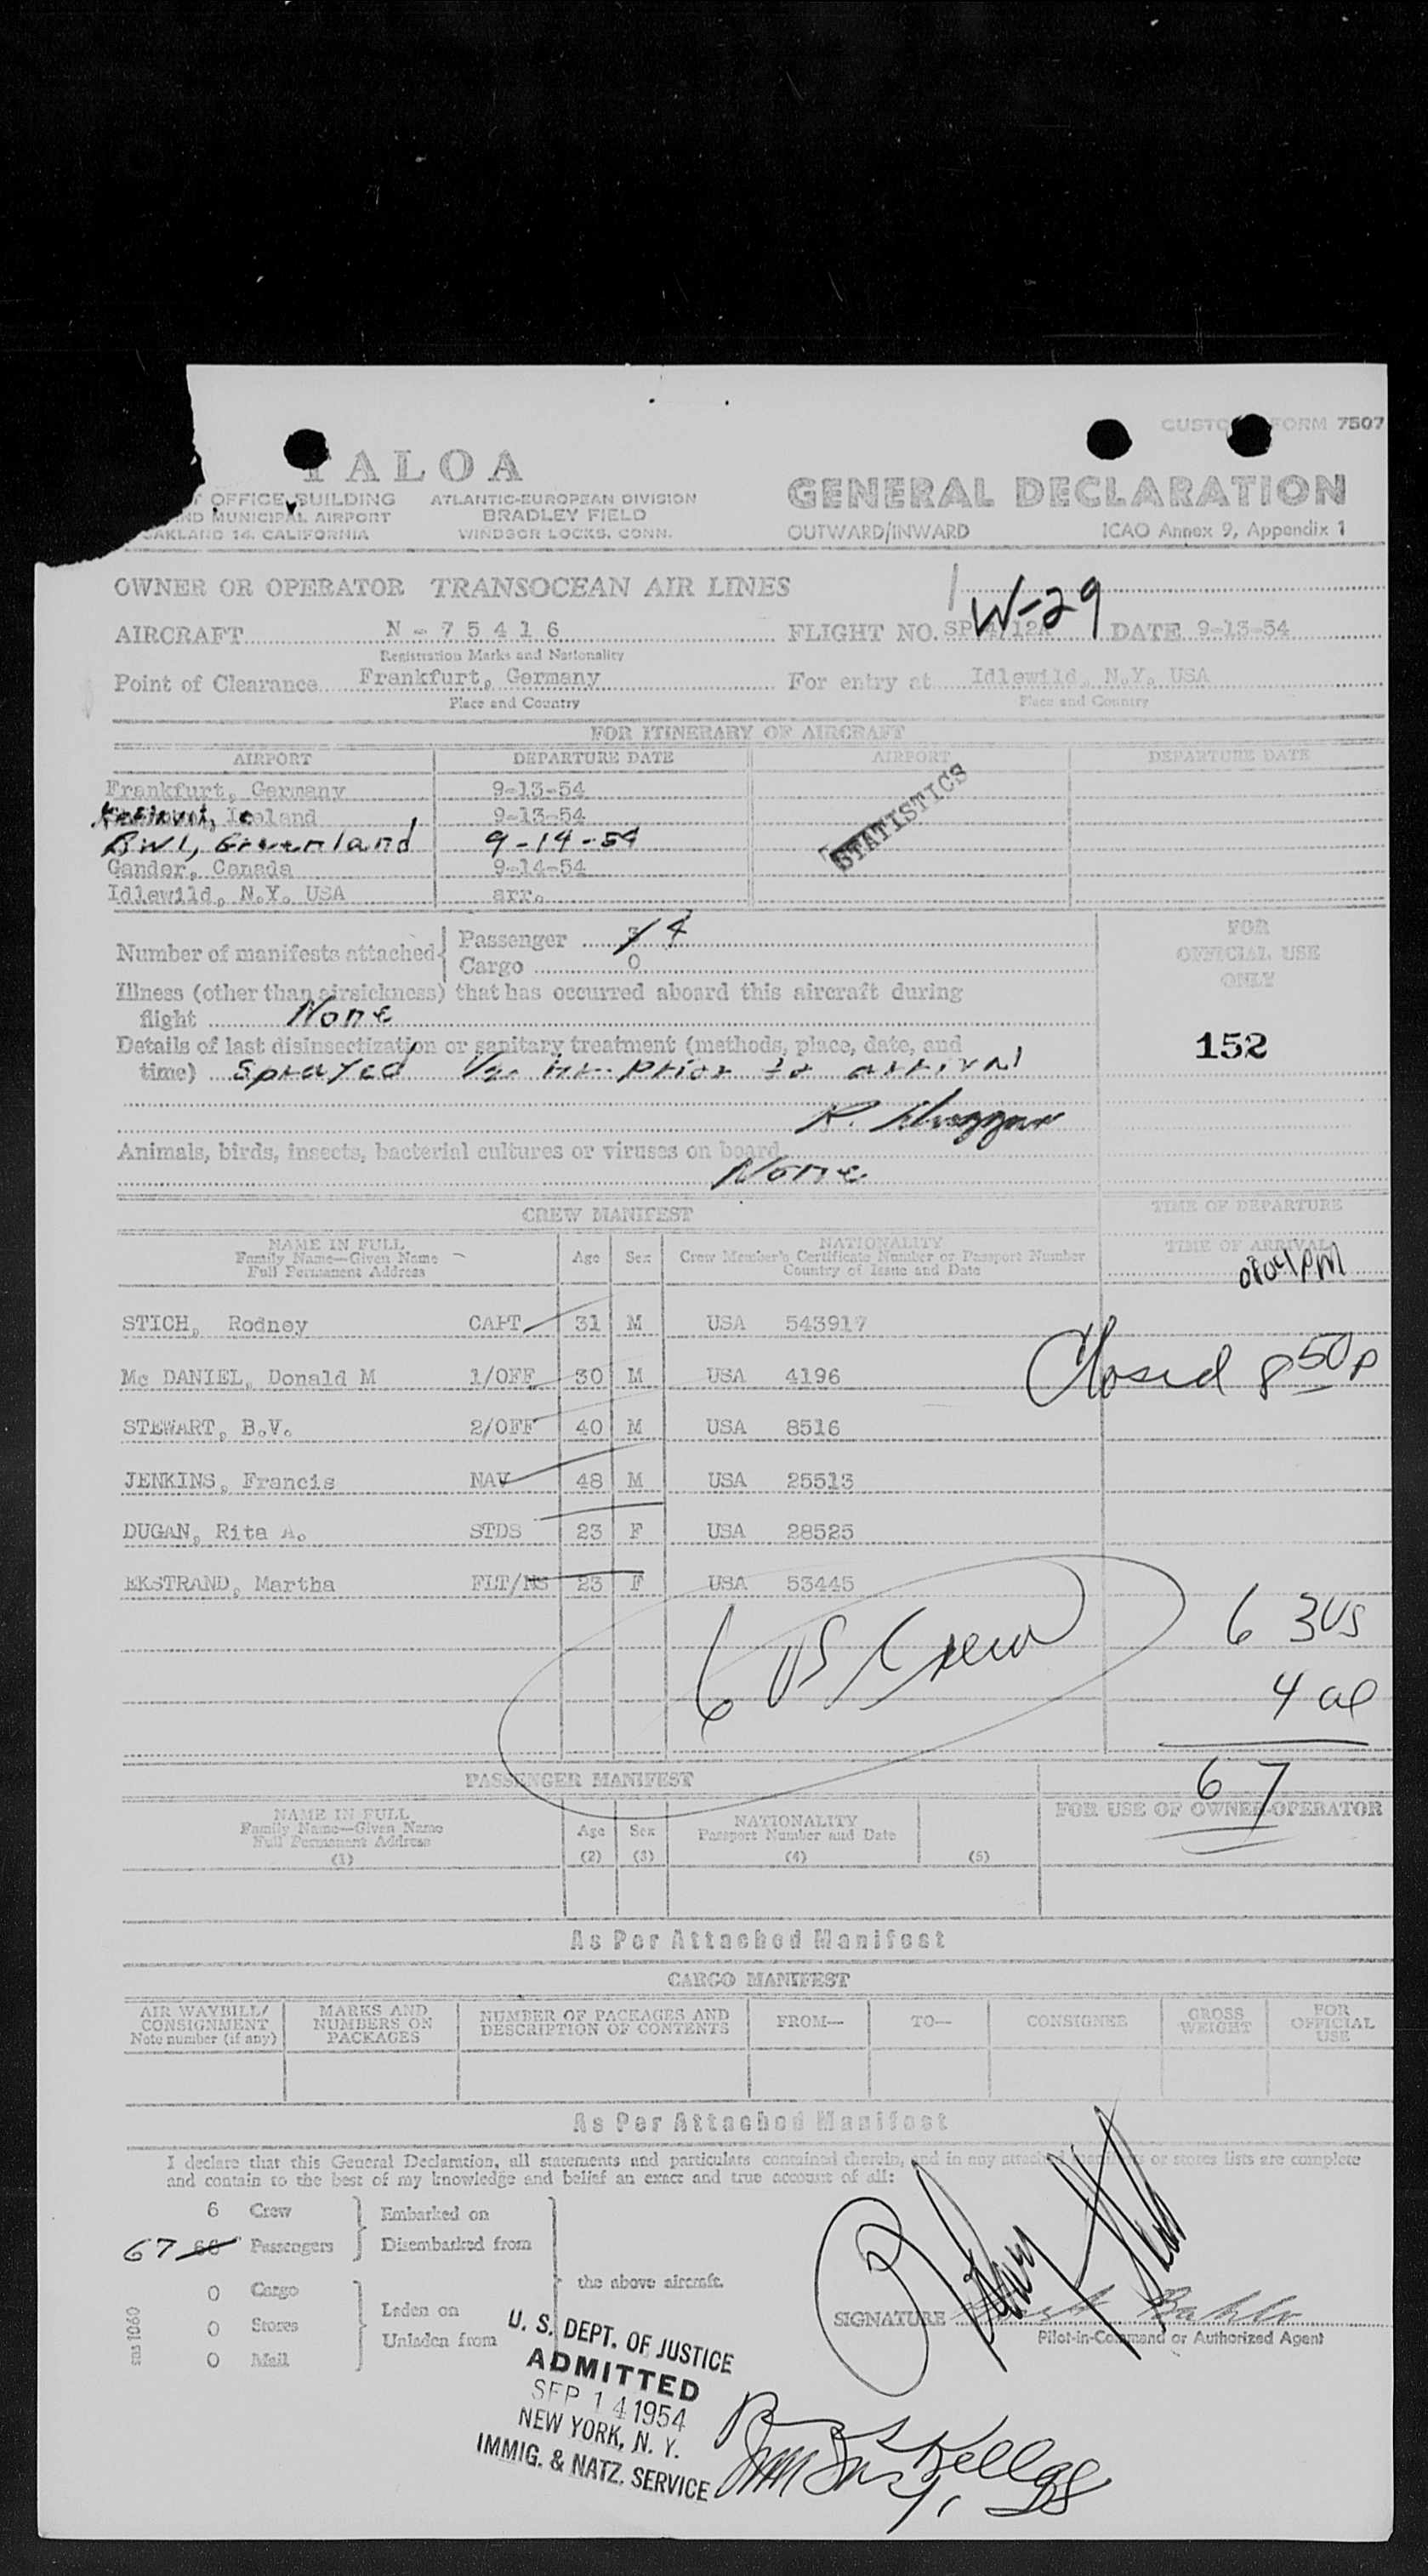 CUSTO FORM 7507
TALOA
OFFICE BUILDING
ATLANTIC-EUROPEAN DIVISION
GENERAL DECLARATION
ND MUNICIPAL AIRPORT
BRADLEY FIELD
OAKLAND 14, CALIFORNIA
WINDSOR LOCKS, CONN.
OUTWARD/INWARD
ICAO Annex 9, Appendix 1
OWNER OR OPERATOR TRANSOCEAN AIR LINES
W-29
AIRCRAFT N-75416 FLIGHT NO. DATE 9-13-54
Registration Marks and Nationality
Point of Clearance Frankfurt, Germany For entry at Idlewild, N.Y. USA
Place and Country Place and Country
FOR ITINERARY OF AIRCRAFT
AIRPORT DEPARTURE DATE AIRPORT DEPARTURE DATE
Frankfurt, Germany 9-13-54
STATISTICS
Iceland 9-13-54
BW1, Greenland 9-14-54
Gander, Canada 9-14-54
Idlewild, N.Y. USA arr.
Number of manifests attached Passenger 3 4
Cargo 0
FOR
OFFICIAL USE
ONLY
Illness (other than airsickness) that has occurred aboard this aircraft during
flight None
152
Details of last disinsectization or sanitary treatment (methods, place, date, and
time) Sprayed 1/2 hr prior to arrival
Animals, birds, insects, bacterial cultures or viruses on board
None
CREW MANIFEST
TIME OF DEPARTURE
NAME IN FULL
Family Name—Given Name
Full Permanent Address
Age Sex
NATIONALITY
Crew Member's Certificate Number or Passport Number
Country of Issue and Date
TIME OF ARRIVAL
0804 PM
STICH, Rodney CAPT 31 M USA 543917
Closed 8 50 p
Mc DANIEL, Donald M 1/OFF 30 M USA 4196
STEWART, B.V. 2/OFF 40 M USA 8516
JENKINS, Francis NAV 48 M USA 25513
DUGAN, Rita A. STDS 23 F USA 28525
EKSTRAND, Martha FLT/NS 23 F USA 53445
6 US Crew
6 3 US
4 al
67
PASSENGER MANIFEST
NAME IN FULL
Family Name—Given Name
Full Permanent Address
(1)
Age
(2)
Sex
(3)
NATIONALITY
Passport Number and Date
(4)
(5)
FOR USE OF OWNER-OPERATOR
As Per Attached Manifest
CARGO MANIFEST
AIR WAYBILL/
CONSIGNMENT
Note number (if any)
MARKS AND
NUMBERS ON
PACKAGES
NUMBER OF PACKAGES AND
DESCRIPTION OF CONTENTS
FROM—
TO—
CONSIGNEE
GROSS
WEIGHT
FOR
OFFICIAL
USE
As Per Attached Manifest
I declare that this General Declaration, all statements and particulars contained therein, and in any attached or stores lists are complete
and contain to the best of my knowledge and belief an exact and true account of all:
6 Crew
67 66 Passengers
Embarked on
Disembarked from
0 Cargo
0 Stores
0 Mail
Laden on
Unladen from
the above aircraft.
sns 1060
SIGNATURE
Pilot-in-Command or Authorized Agent
U. S. DEPT. OF JUSTICE
ADMITTED
SEP 14 1954
NEW YORK, N. Y.
IMMIG. & NATZ. SERVICE